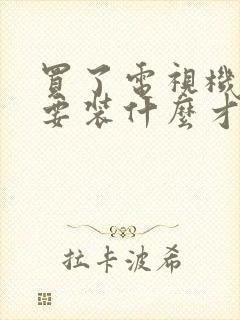 買了電視機
要裝什麼才
拉卡波希